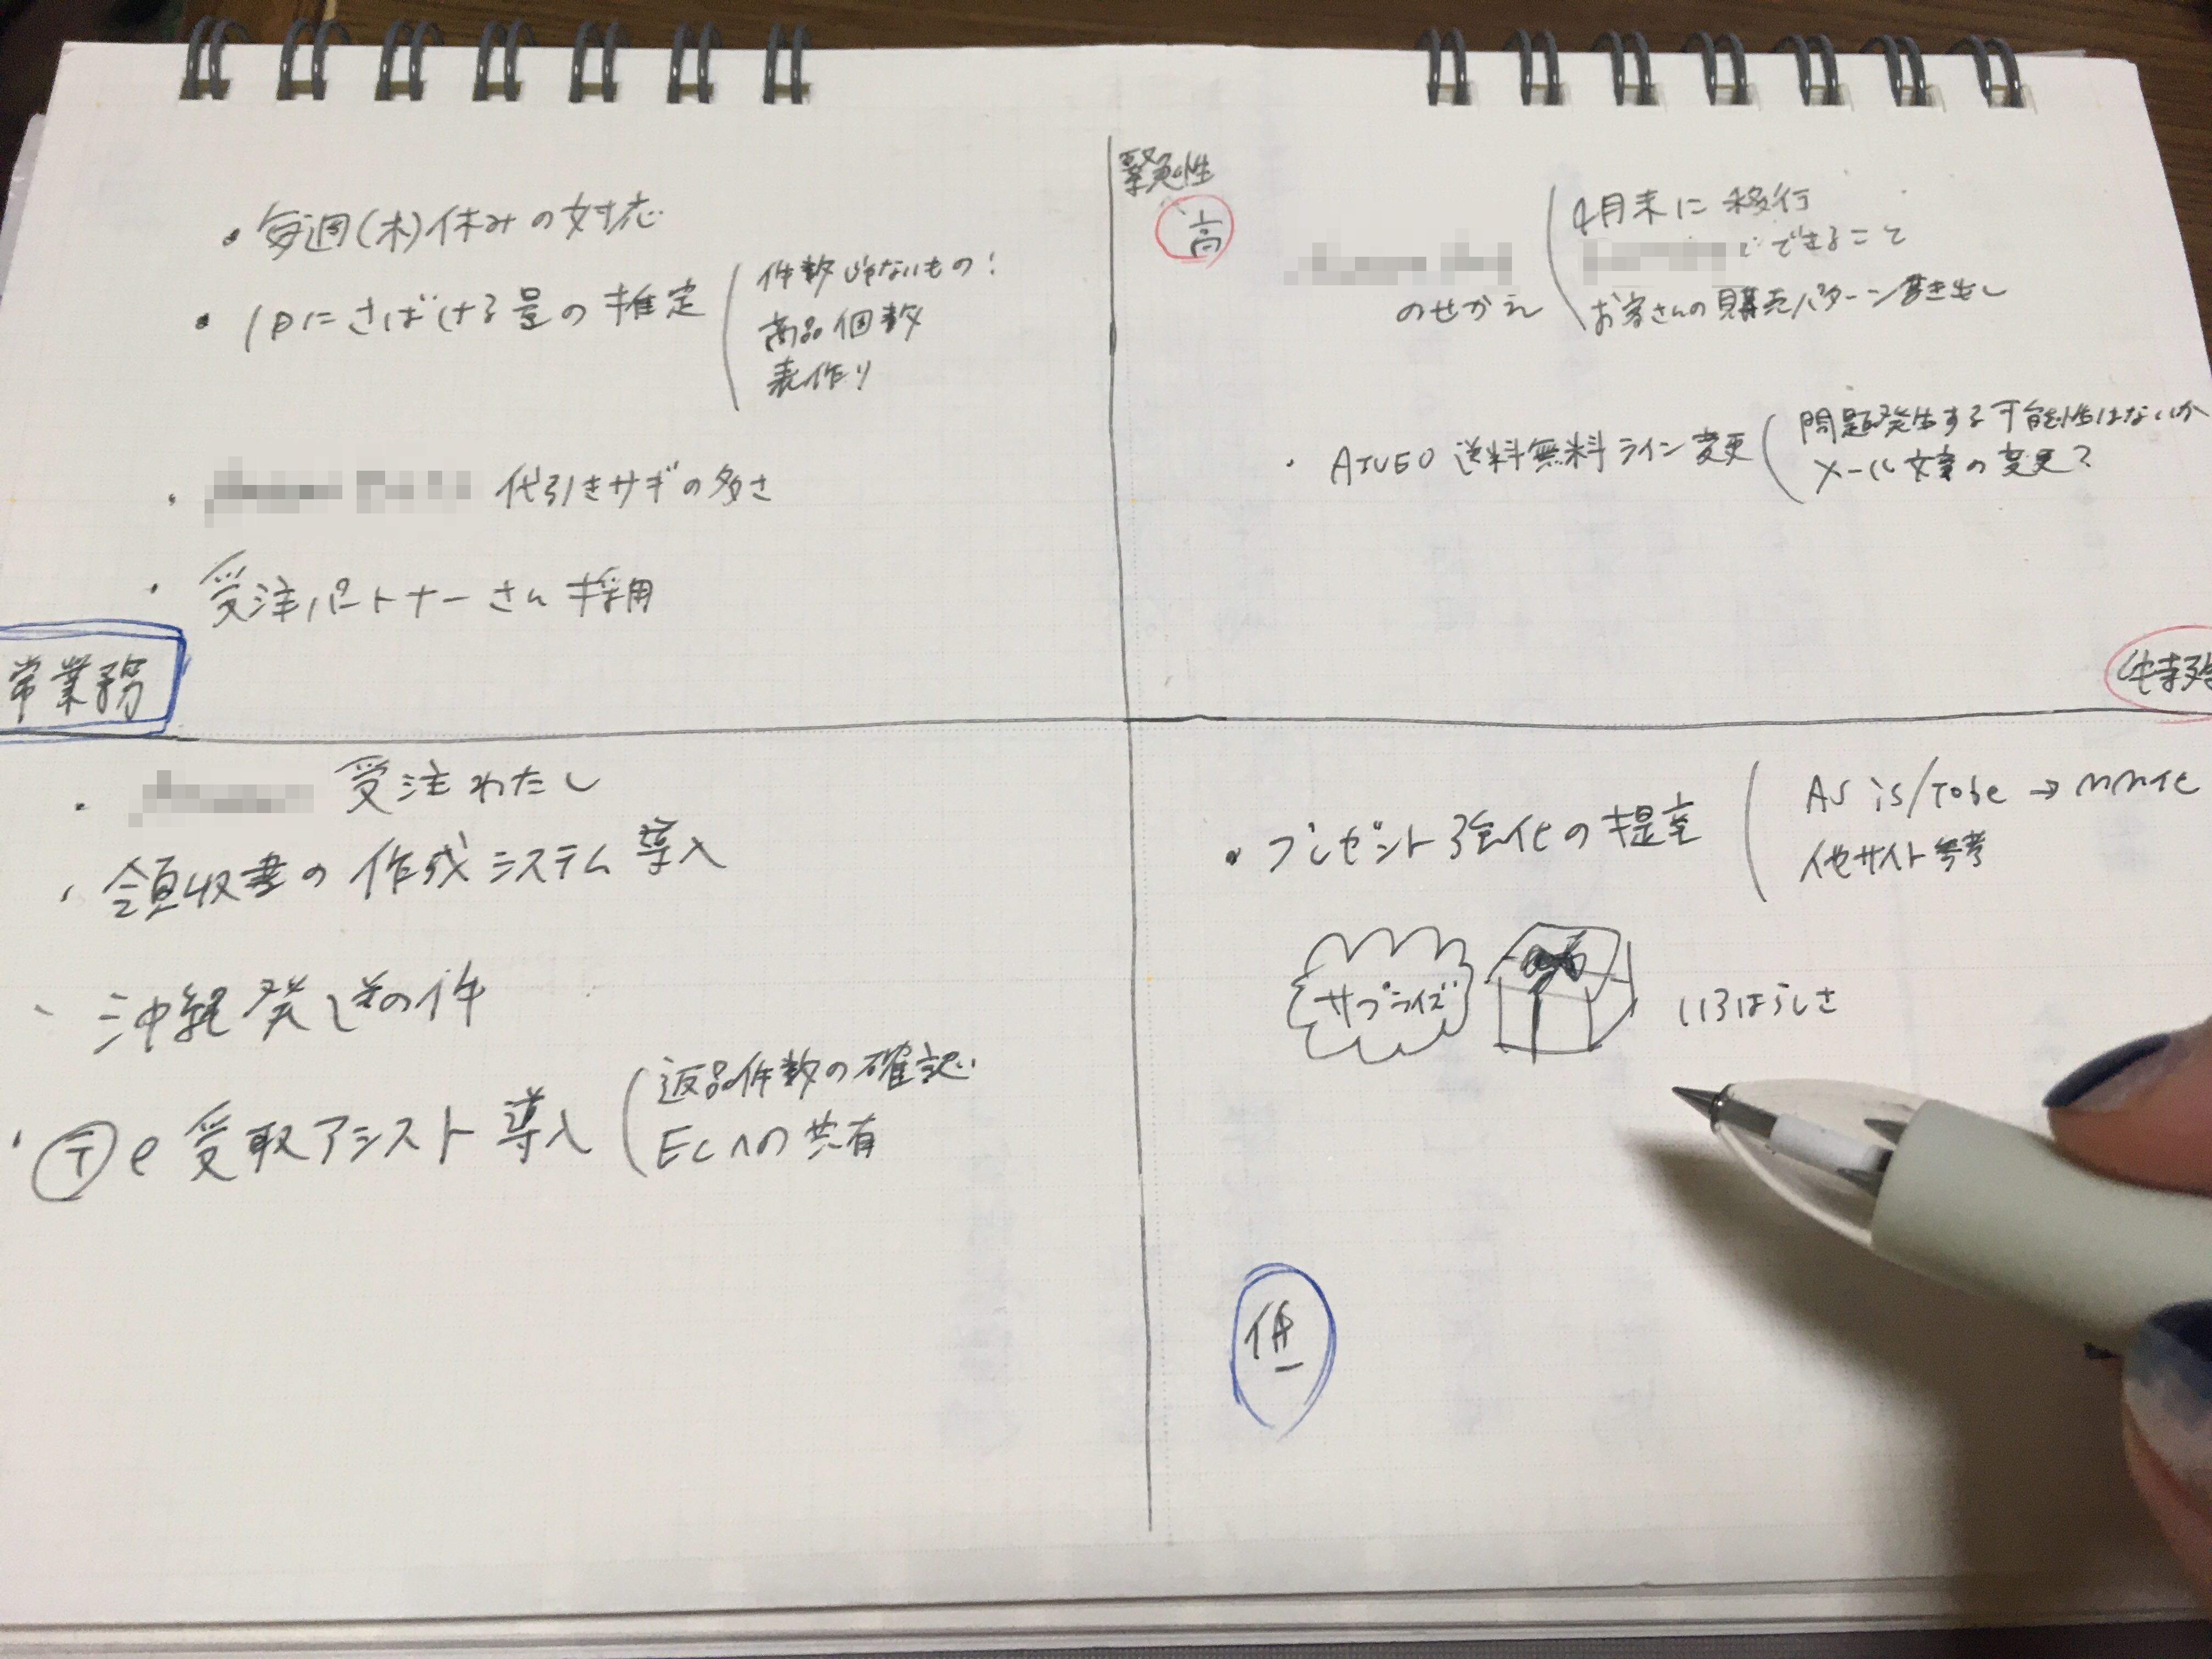 緊急性
高
・毎週(木)休みの対応
・1日にさばける量の推定
件数じゃないもの!
商品個数
表作り
・代引きサギの多さ
・受注パートナーさん採用
常業務
4月末に移行
できること
のせかえ
お客さんの購売パターン書き出し
・送料無料ライン変更
問題発生する可能性はないか
メール文章の変更?
特殊
・受注わたし
・領収書の作成システム導入
・沖縄発送の件
・e受取アシスト導入
返品件数の確認
ECへの共有
・プレゼント強化の提案
AS is/Tobe →
他サイト参考
サプライズ
いろはらしさ
低